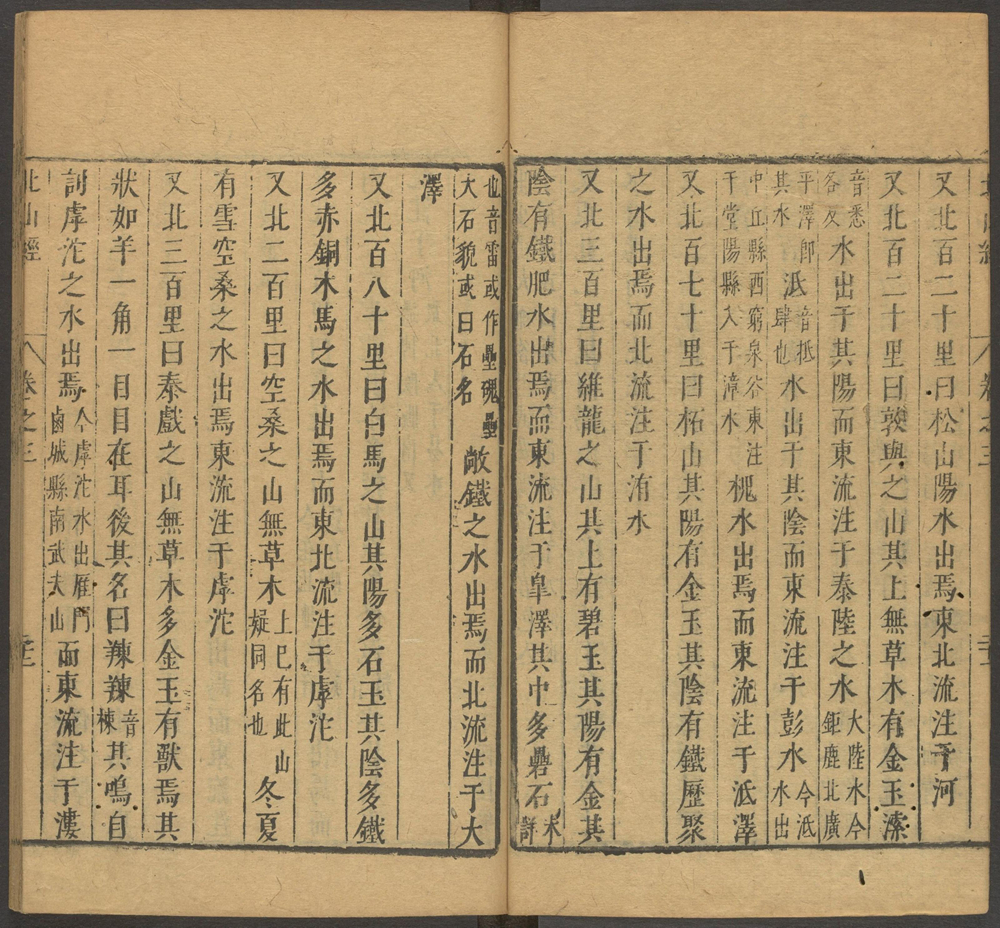 又北百二十里曰松山陽水出焉東北流注于河
又北百二十里曰敦與之山其上無草木有金玉溹
音悉各反水出于其陽而東流注于泰陸之水大陸水今鉅鹿北廣
平澤郎其水泜音抵肆也水出于其陰而東流注于彭水今泜水出
中丘縣西窮泉谷東注于堂陽縣入于漳水槐水出焉而東流注于泜澤
又北百七十里曰柘山其陽有金玉其陰有鐵歷聚
之水出焉而北流注于洧水
又北三百里曰維龍之山其上有碧玉其陽有金其
陰有鐵肥水出焉而東流注于皐澤其中多礨石未詳
也音雷或作壘磈壘大石貌或曰石名敞鐵之水出焉而北流注于大
澤
又北百八十里曰白馬之山其陽多石玉其陰多鐵
多赤銅木馬之水出焉而東北流注于虖沱
又北二百里曰空桑之山無草木上已有此山疑同名也冬夏
有雪空桑之水出焉東流注于虖沱
又北三百里曰泰戲之山無草木多金玉有獸焉其
狀如羊一角一目目在耳後其名曰䍶䍶音棟其鳴自
訓虖沱之水出焉今虖沱水出雁門鹵城縣南武夫山而東流注于漊
北山經 卷之三